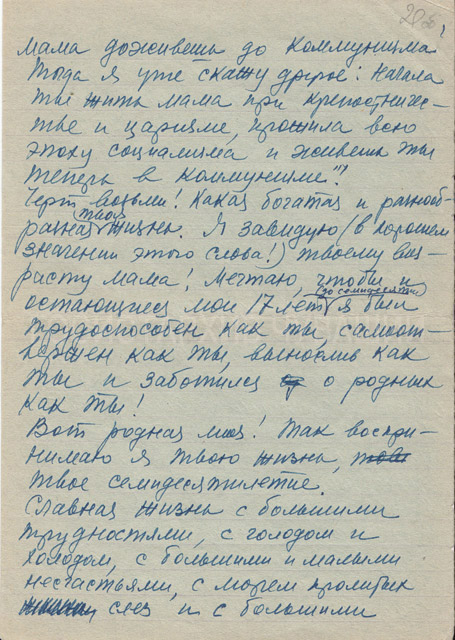 205
мама доживешь до коммунизма.
Тогда я уже скажу другое: Начала
ты жить мама при крепостничес-
тве и царизме, прожила всю
эпоху социализма и живешь ты
теперь в коммунизме!"
Черт возьми! Какая богатая и разнооб-
разная твоя жизнь. Я завидую (в хорошем
значении этого слова!) твоему воз-
расту мама! Мечтаю, чтобы и
остающиеся мои 17 лет (до семидесяти) я был
трудоспособен как ты, самоот-
вержен как ты, вынослив как
ты и заботился о родных
как ты!
Вот родная моя! Так воспри-
нимаю я твою жизнь,
твое семидесятилетие.
Славная жизнь с большими
трудностями, с голодом и
холодом, с большими и малыми
несчастьями, с морем пролитых
слез и с большими